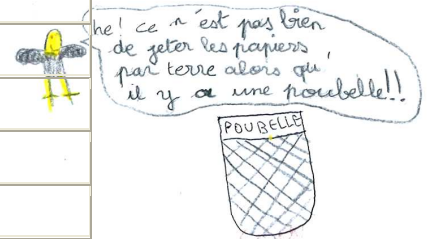 he! ce n'est pas bien
de jeter les papiers
par terre alors qu'
il y a une poubelle!!
POUBELLE